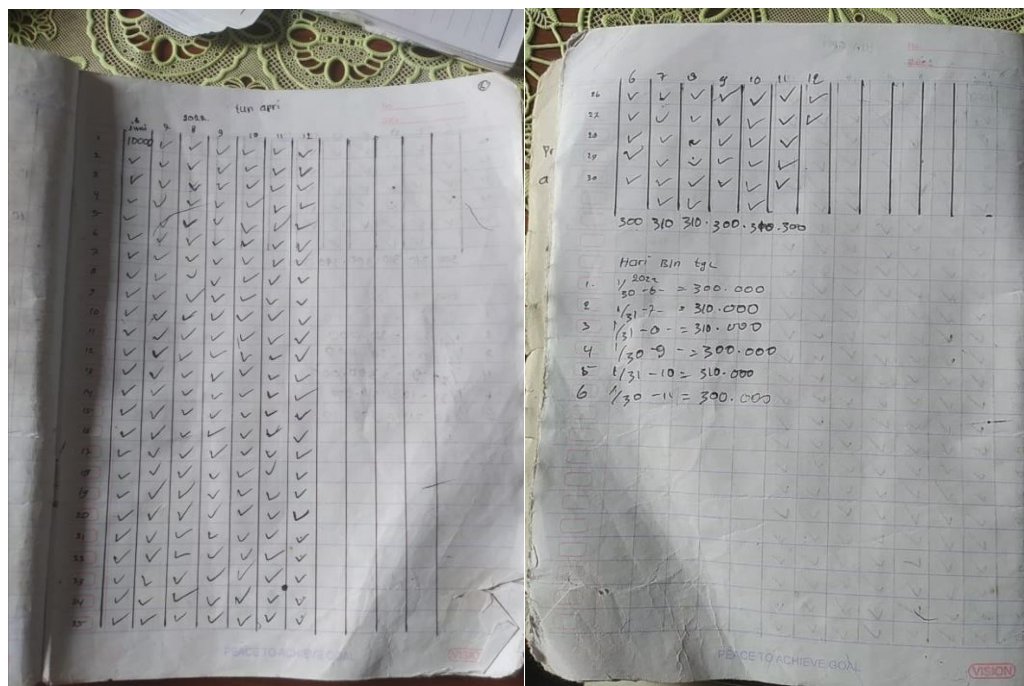 6
tun apri
6 2022
Juni 7 8 9 10 11 12
1 10000 ✓ ✓ ✓ ✓ ✓ ✓
2 ✓ ✓ ✓ ✓ ✓ ✓ ✓
3 ✓ ✓ ✓ ✓ ✓ ✓ ✓
4 ✓ ✓ ✓ ✓ ✓ ✓ ✓
5 ✓ ✓ ✓ ✓ ✓ ✓ ✓
6 ✓ ✓ ✓ ✓ ✓ ✓ ✓
7 ✓ ✓ ✓ ✓ ✓ ✓ ✓
8 ✓ ✓ ✓ ✓ ✓ ✓ ✓
9 ✓ ✓ ✓ ✓ ✓ ✓ ✓
10 ✓ ✓ ✓ ✓ ✓ ✓ ✓
11 ✓ ✓ ✓ ✓ ✓ ✓ ✓
12 ✓ ✓ ✓ ✓ ✓ ✓ ✓
13 ✓ ✓ ✓ ✓ ✓ ✓ ✓
14 ✓ ✓ ✓ ✓ ✓ ✓ ✓
15 ✓ ✓ ✓ ✓ ✓ ✓ ✓
16 ✓ ✓ ✓ ✓ ✓ ✓ ✓
17 ✓ ✓ ✓ ✓ ✓ ✓ ✓
18 ✓ ✓ ✓ ✓ ✓ ✓ ✓
19 ✓ ✓ ✓ ✓ ✓ ✓ ✓
20 ✓ ✓ ✓ ✓ ✓ ✓ ✓
21 ✓ ✓ ✓ ✓ ✓ ✓ ✓
22 ✓ ✓ ✓ ✓ ✓ ✓ ✓
23 ✓ ✓ ✓ ✓ ✓ ✓ ✓
24 ✓ ✓ ✓ ✓ ✓ ✓ ✓
25 ✓ ✓ ✓ ✓ ✓ ✓ ✓
PEACE TO ACHIEVE GOAL
6 7 8 9 10 11 12
26 ✓ ✓ ✓ ✓ ✓ ✓ ✓
27 ✓ ✓ ✓ ✓ ✓ ✓ ✓
28 ✓ ✓ ✓ ✓ ✓ ✓
29 ✓ ✓ ✓ ✓ ✓ ✓
30 ✓ ✓ ✓ ✓ ✓ ✓
✓ ✓ ✓
300 310 310. 300. 310. 300
Hari Bln tgl
2022
1. 1/30 -6- = 300.000
2 1/31 -7- = 310.000
3 1/31 -8- = 310.000
4 1/30 -9 - = 300.000
5 1/31 -10 = 310.000
6 1/30 -11 = 300.000
PEACE TO ACHIEVE GOAL
VISION